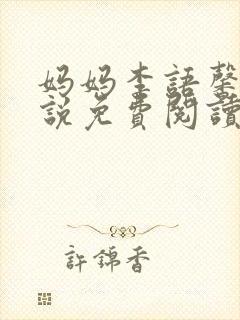 妈妈李語馨
説免費閱讀
許錦香